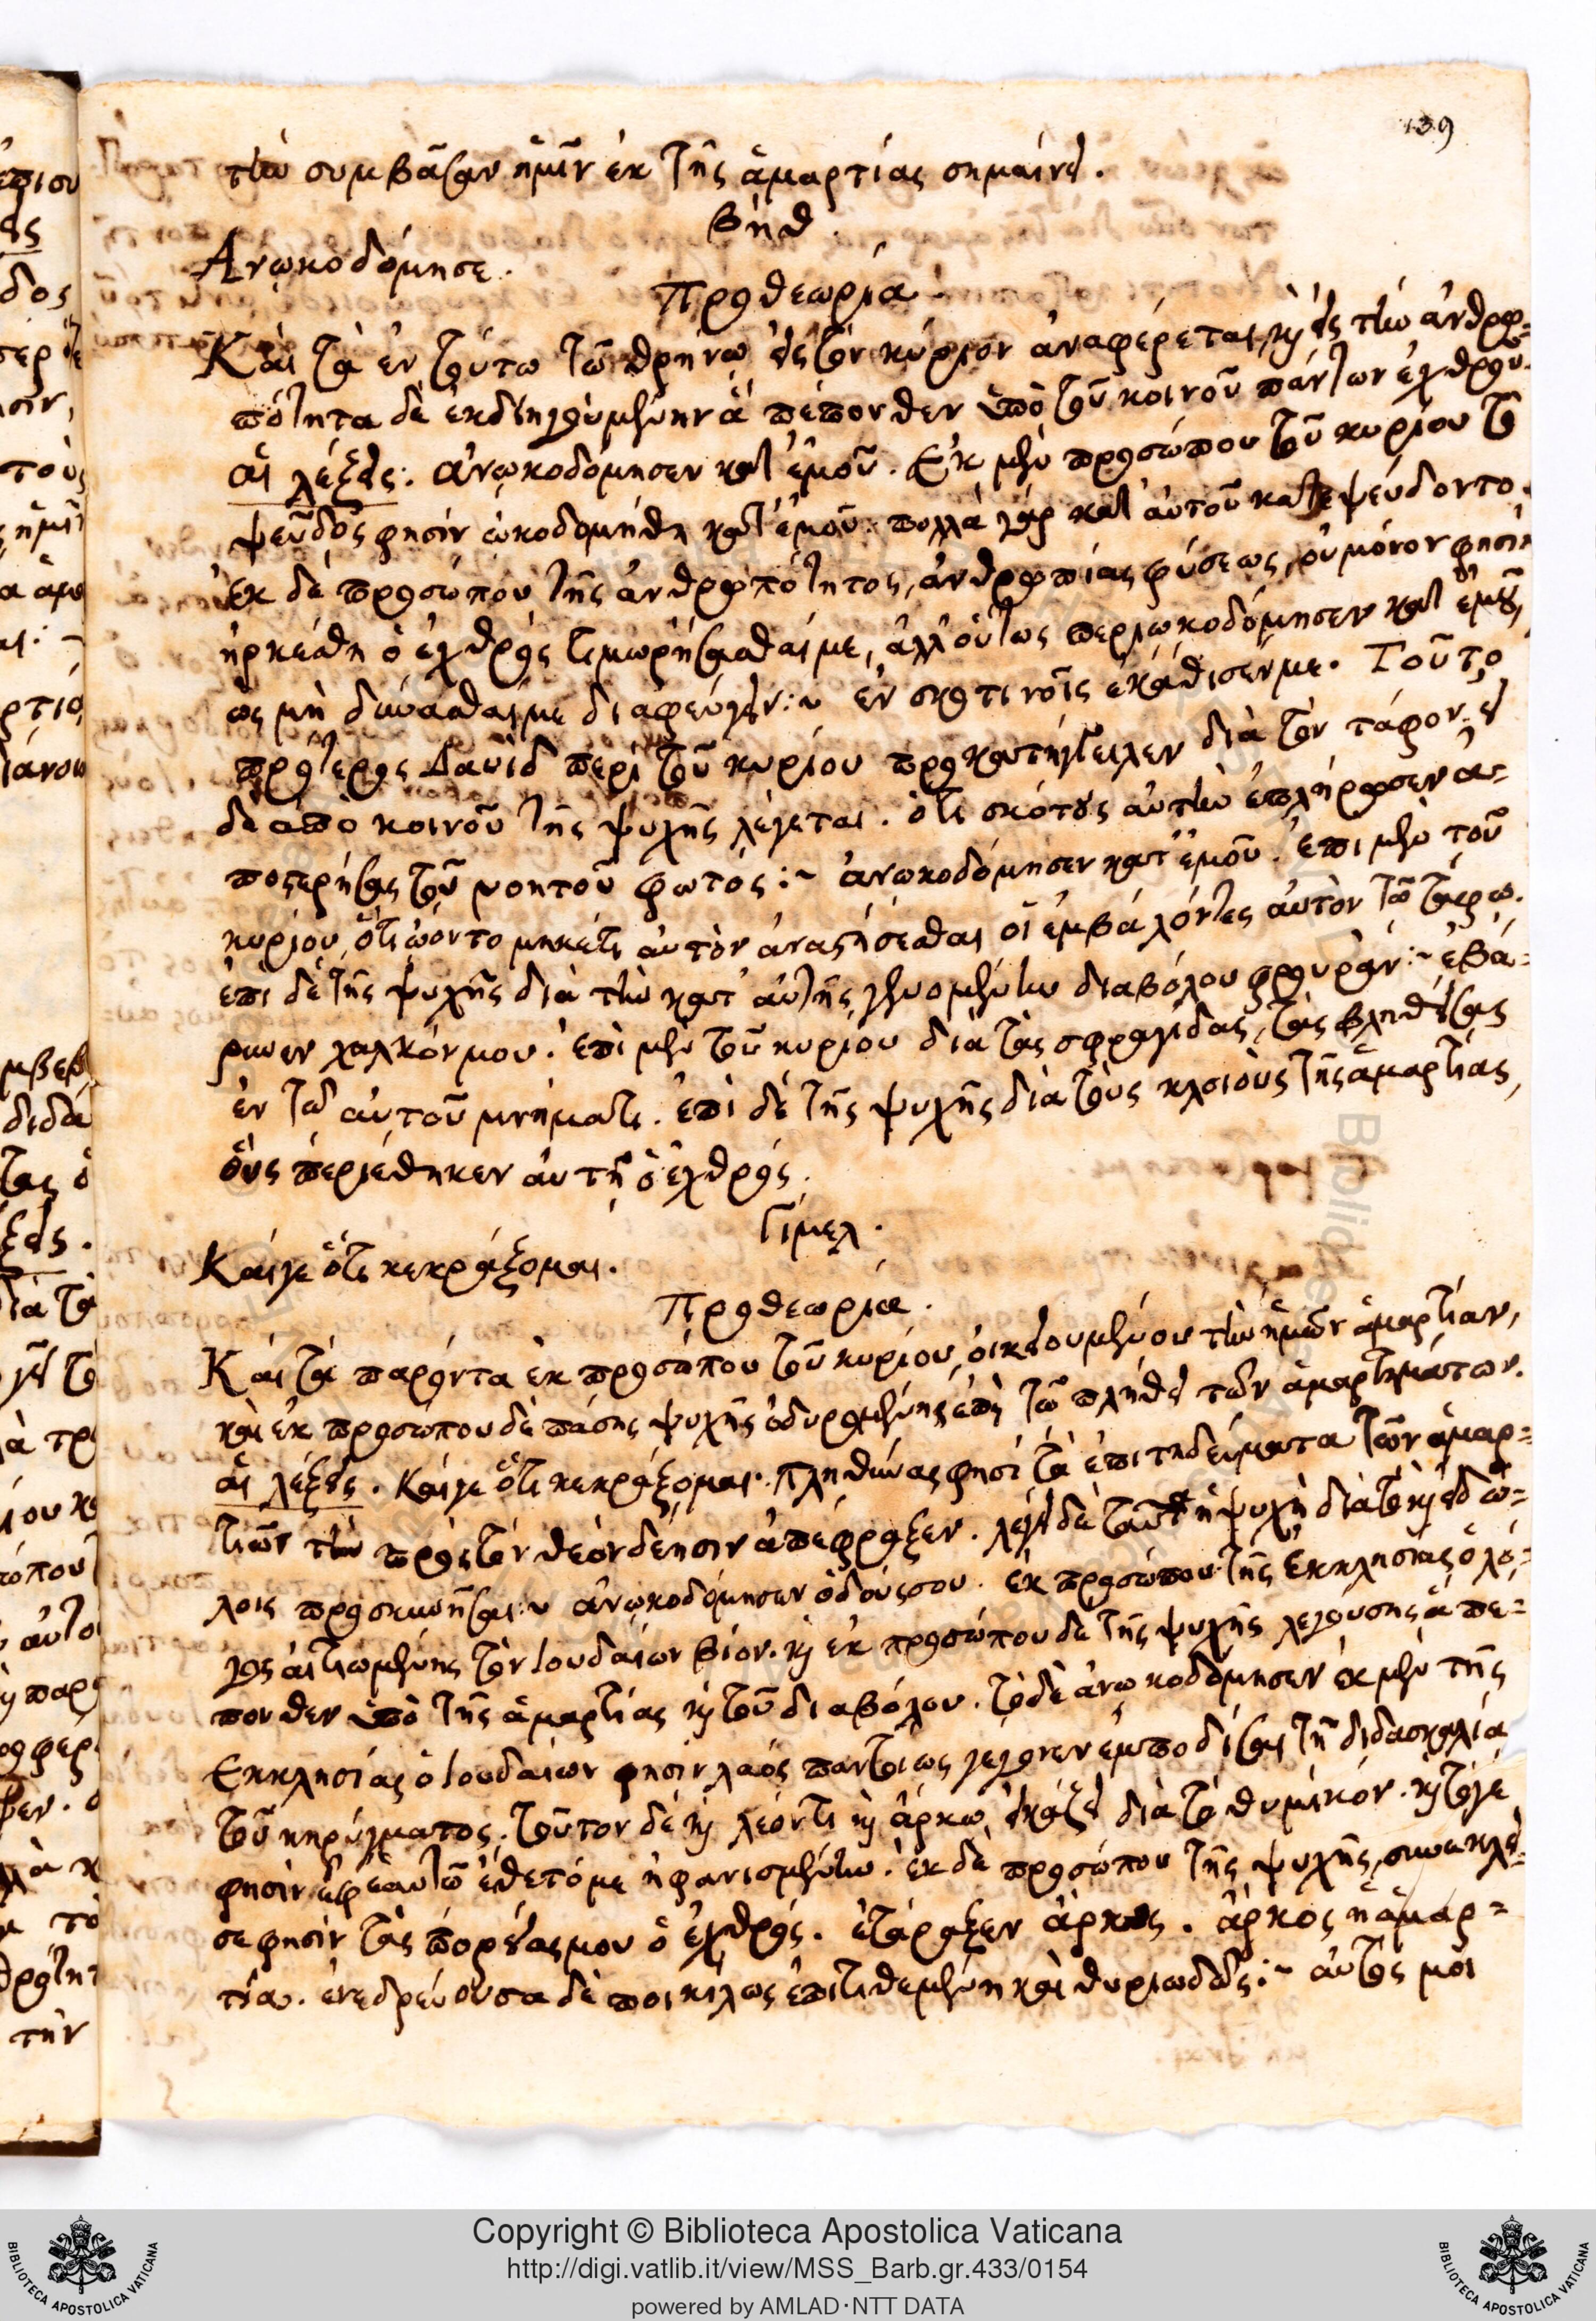 139
τὴν συμβᾶσαν ἡμῖν ἐκ τῆς ἁμαρτίας σημαίνει.
βήθ.
Ἀνῳκοδόμησε.
Προθεωρία.
Καὶ τὰ ἐν τούτω τῶ θρήνω εἰς τὸν κύριον ἀναφέρεται, καὶ εἰς τὴν ἀνθρω=
πότητα δὲ ἐκδιηγουμένην ἃ πέπονθεν ὑπὸ τοῦ κοινοῦ πάντων ἐχθροῦ.
αἱ λέξεις. ἀνῳκοδόμησεν κατ' ἐμοῦ. Ἐκ μὲν προσώπου τοῦ κυρίου τὸ
ψεῦδος φησὶν ὠκοδομήθη κατ' ἐμοῦ. πολλὰ γὰρ κατ' αὐτοῦ κατεψεύδοντο.
ἐκ δὲ προσώπου τῆς ἀνθρωπότητος, ἀνθρωπίας φύσεως, οὐ μόνον φησὶν
ἠρκέσθη ὁ ἐχθρὸς τιμωρήσασθαί με, ἀλλ' οὕτως περιῳκοδόμησεν κατ' ἐμοῦ,
ὡς μὴ δύνασθαί με διαφεύγειν:~ ἐν σκοτινοῖς ἐκάθισέν με. Τοῦτο
πρότερος Δαυὶδ περὶ τοῦ κυρίου προκατήγγειλεν διὰ τὸν τάφον. εἰ
δὲ ἀπὸ κοινοῦ τῆς ψυχῆς λέγεται. ὅτι σκότους αὐτὴν ἐπλήρωσεν ἀ=
ποστερήσας τοῦ νοητοῦ φωτός:~ ἀνῳκοδόμησεν κατ' ἐμοῦ. ἐπι μὲν τοῦ
κυρίου, ὅτι ὤοντο μηκέτι αὐτὸν ἀναστήσεσθαι οἱ ἐμβαλόντες αὐτὸν τῶ τάφω.
ἐπὶ δὲ τῆς ψυχῆς διὰ τὴν κατ' αὐτῆς γενομένην διαβόλου φρουράν:~ ἐβά=
ρυνεν χαλκόν μου. ἐπὶ μὲν τοῦ κυρίου διὰ τὰς σφραγίδας, τὰς βληθείσας
ἐν τῶ αὐτοῦ μνήματι. ἐπὶ δὲ τῆς ψυχῆς διὰ τοὺς κλοιοὺς τῆς ἁμαρτίας,
οὓς περιέθηκεν αὐτῇ ὁ ἐχθρός.
Γίμελ.
Καίγε ὅτι κεκράξομαι.
Προθεωρία.
Καὶ τὰ παρόντα ἐκ προσώπου τοῦ κυρίου, οἰκειουμένου τὴν ἡμῶν ἁμαρτίαν,
καὶ ἐκ προσώπου δὲ πάσης ψυχῆς ὀδυρομένης ἐπὶ τῶ πλήθει τῶν ἁμαρτημάτων.
αἱ λέξεις. Καίγε ὅτι κεκράξομαι. πληθύνας φησὶ τὰ ἐπιτηδεύματα τῶν ἁμαρ=
τιῶν τὴν πρὸς τὸν θεὸν δέησιν ἀπέφραξεν. λέγει δὲ ταῦτα ἡ ψυχὴ διὰ τὸ καὶ εἰδώ=
λοις προσκυνῆσαι:~ ἀνῳκοδόμησεν ὁδούς σου. ἐκ προσώπου τῆς Ἐκκλησίας ὁ λό=
γος αἰτιωμένης τὸν Ἰουδαίων βίον. καὶ ἐκ προσώπου δὲ τῆς ψυχῆς λεγούσης ἃ πέ=
πονθεν ὑπὸ τῆς ἁμαρτίας καὶ τοῦ διαβόλου. τὸ δὲ ἀνῳκοδόμησεν ἐκ μὲν τῆς
Ἐκκλησίας ὁ Ἰουδαίων φησὶν λαὸς παντοίως γέγονεν ἐμποδίσαι τῇ διδασκαλίᾳ
τοῦ κηρύγματος. τοῦτον δὲ καὶ λέοντι καὶ ἄρκω, εἰκάζει διὰ τὸ θυμικόν. καὶ τόγε
φησὶν ἐφ' ἑαυτῶ ἔθετό με ἠφανισμένην. ἐκ δὲ προσώπου τῆς ψυχῆς, συνέκλει=
σε φησὶν τὰς πορείας μου ὁ ἐχθρός. ἐτάραξεν ἄρκος. ἄρκος ἡ ἁμαρ=
τία. ἐνεδρεύουσα δὲ ποικίλως ἐπιτιθεμένη καὶ θυριωδῶς:~ αὐτός μοι
Copyright © Biblioteca Apostolica Vaticana
http://digi.vatlib.it/view/MSS_Barb.gr.433/0154
powered by AMLAD·NTT DATA
BIBLIOTECA APOSTOLICA VATICANA
BIBLIOTECA APOSTOLICA VATICANA